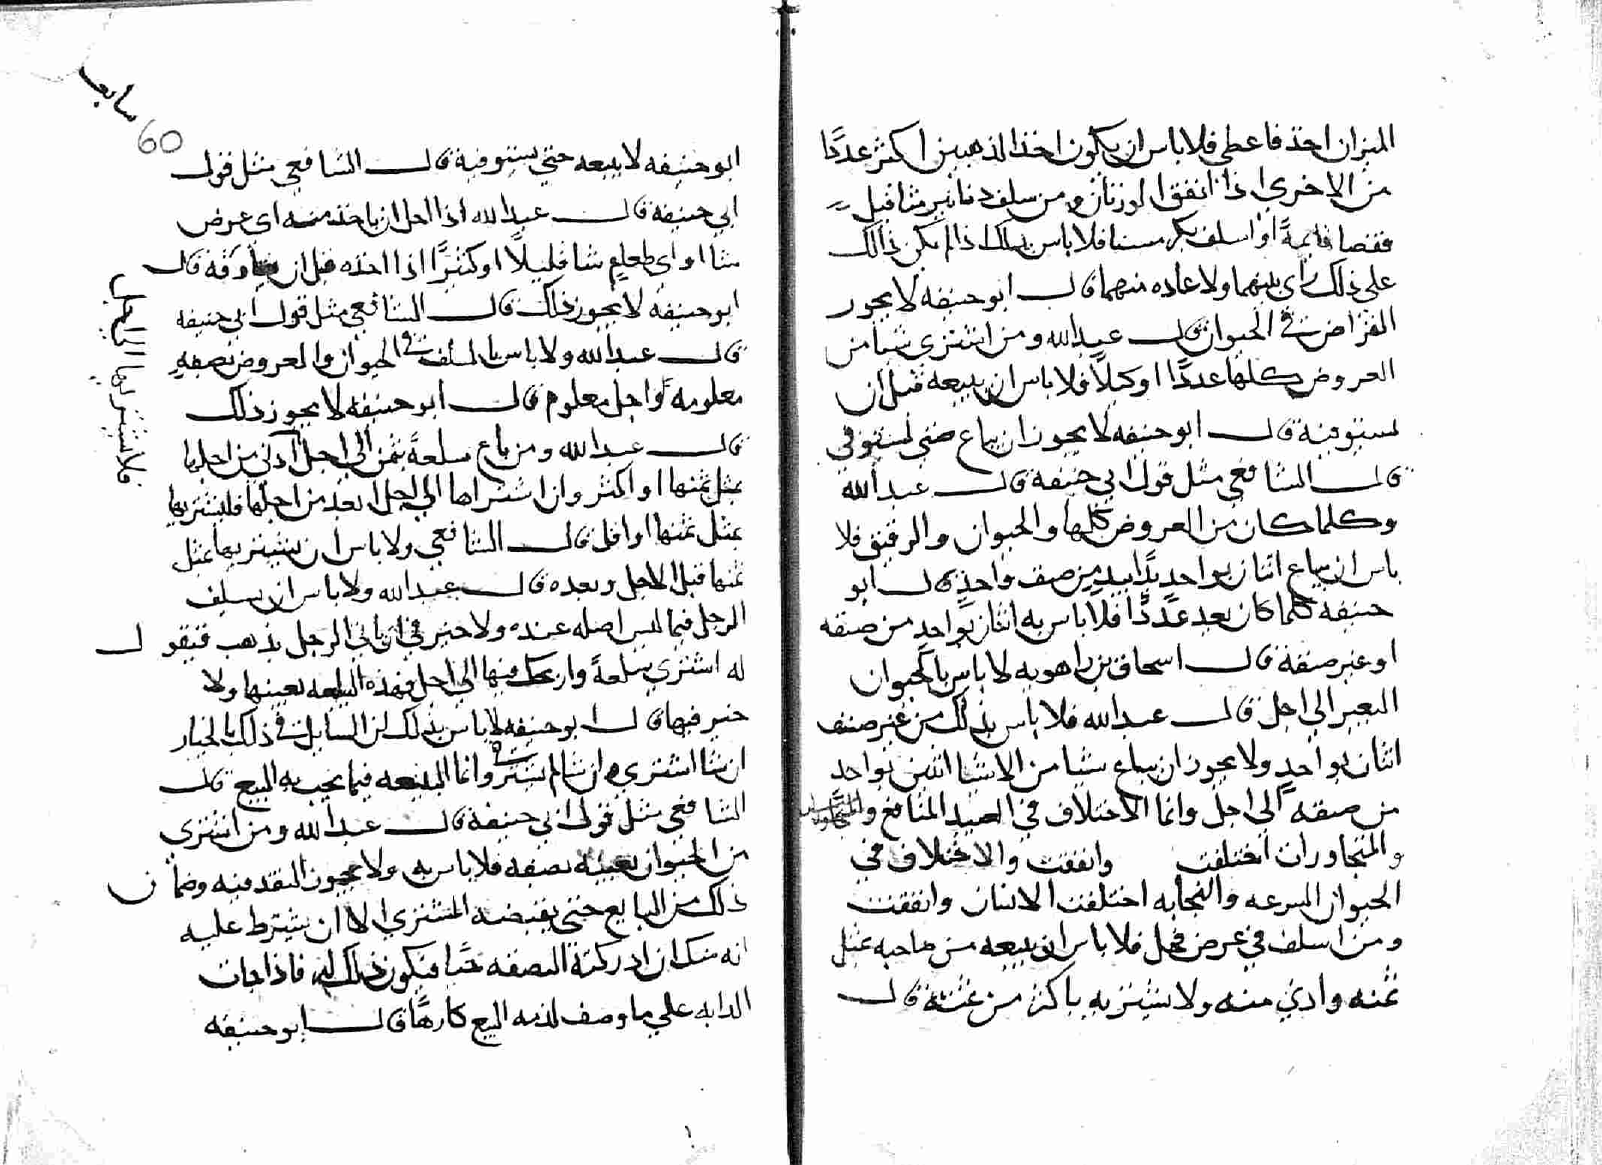 الميزان اخذ فاعطى فلا باس ان يكون احد الذهبين اكثر عددًا
من الاخرى اذا اتفق الوزنان ومن سلف دنانير مثاقيل
فقضا قايمة او اسلف بكر مسنا فلا باس بذلك اذا لم يكن ذالك
على ذلك راى بينهما ولا عاده منهما قال ابو حنيفه لا يجوز
القراض في الحيوان قال عبد الله ومن اشترى شيا من
العروض كلها عددًا او كيلًا فلا باس ان يبيعه قبل ان
يستوفيه قال ابو حنيفه لا يجوز ان يباع حتى يستوفي
قال الشافعي مثل قول ابي حنيفة قال عبد الله
وكلما كان من العروض كلها والحيوان والرقيق فلا
باس ان يباع اثنان بواحد يدًا بيدٍ من صنف واحدٍ قال ابو
حنيفه كلما كان يعد عددًا فلا باس به اثنان بواحدٍ من صنفه
او غير صنفه قال اسحاق بن راهويه لا باس بالحيوان
البعير الى اجل قال عبد الله فلا باس بذلك من غير صنف
اثنان بواحدٍ ولا يجوز ان يباع شيا من الاشيا اثنين بواحد
من صنفه الى اجل وانما الاختلاف في العبيد المنافع و
والتجاورات اختلفت واتفقت والاختلاف في
الحيوان السرعه والنجابه اختلفت الاسنان واتفقت
ومن اسلف في عرض فحل فلا باس ان يبيعه من صاحبه بمثل
ثمنه وادنى منه ولا يشتريه باكثر من ثمنه قال
سابع
60
ابو حنيفه لا يبيعه حتى يستوفيه قال الشافعي مثل قول
ابي حنيفة قال عبد الله اذا احل ان ياخذ منه اى عرض
شا او اي طعامٍ شا قليلًا او كثيرًا اذا اخذه قبل ان يفارقه قال
ابو حنيفه لا يجوز ذلك قال الشافعي مثل قول ابي حنيفه
قال عبد الله ولا باس بالسلف في الحيوان والعروض بصفةٍ
معلومه واجل معلوم قال ابو حنيفه لا يجوز ذلك
قال عبد الله ومن باع سلعةً بثمن الى اجل ادنى من اجلها
بمثل ثمنها او اكثر وان اشتراها الى اجل ابعد من اجلها فليشتريها
بمثل ثمنها او اقل قال الشافعي ولا باس ان يشتريها بمثل
ثمنها قبل الاجل وبعده قال عبد الله ولا باس ان يسلف
الرجل فيما ليس اصله عنده ولا خير في ان ياتي الرجل يذهب فيقول
له اشتري سلعةً واربحك فيها الى اجل فهذه السلعه بعينها ولا
خير فيها قال ابو حنيفه لا باس بذلك لان السايل في ذلك بالخيار
ان شا اشترى وان شا لم يشتر وانما البيعه فيما يجب به البيع قال
الشافعي مثل قول ابي حنيفة قال عبد الله ومن اشترى
من الحيوان بعينه بصفه فلا باس به ولا يجوز النقد فيه وضمان
ذلك من البايع حتى يقبضه المشتري الا ان يشترط عليه
انه منك ان ادركته الصفه حيًا فيكون ذلك له فاذا جات
الدابه على ما وصف لزمه البيع كارهًا قال ابو حنيفه
فلا يشتريها الى اجل